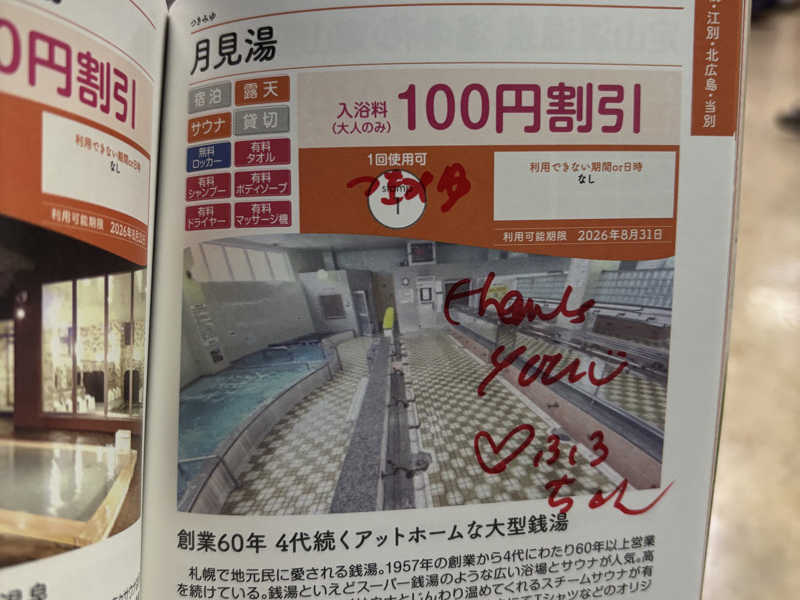 0円割引
利用できない期間or日時
なし
利用可能期限 2026年8月31日
つきみゆ
月見湯
宿泊
露天
サウナ
貸切
無料
ロッカー
有料
タオル
有料
シャンプー
有料
ボディソープ
有料
ドライヤー
有料
マッサージ機
入浴料
(大人のみ)
100円割引
1回使用可
stamp
1
利用できない期間or日時
なし
利用可能期限 2026年8月31日
・江別・北広島・当別
thanks
you
ふろ
ちゃん
創業60年 4代続くアットホームな大型銭湯
札幌で地元民に愛される銭湯。1957年の創業から4代にわたり60年以上営業
を続けている。銭湯といえどスーパー銭湯のような広い浴場とサウナが人気。高
じんわり温めてくれるスチームサウナが有
Tシャツなどのオリジ
温泉